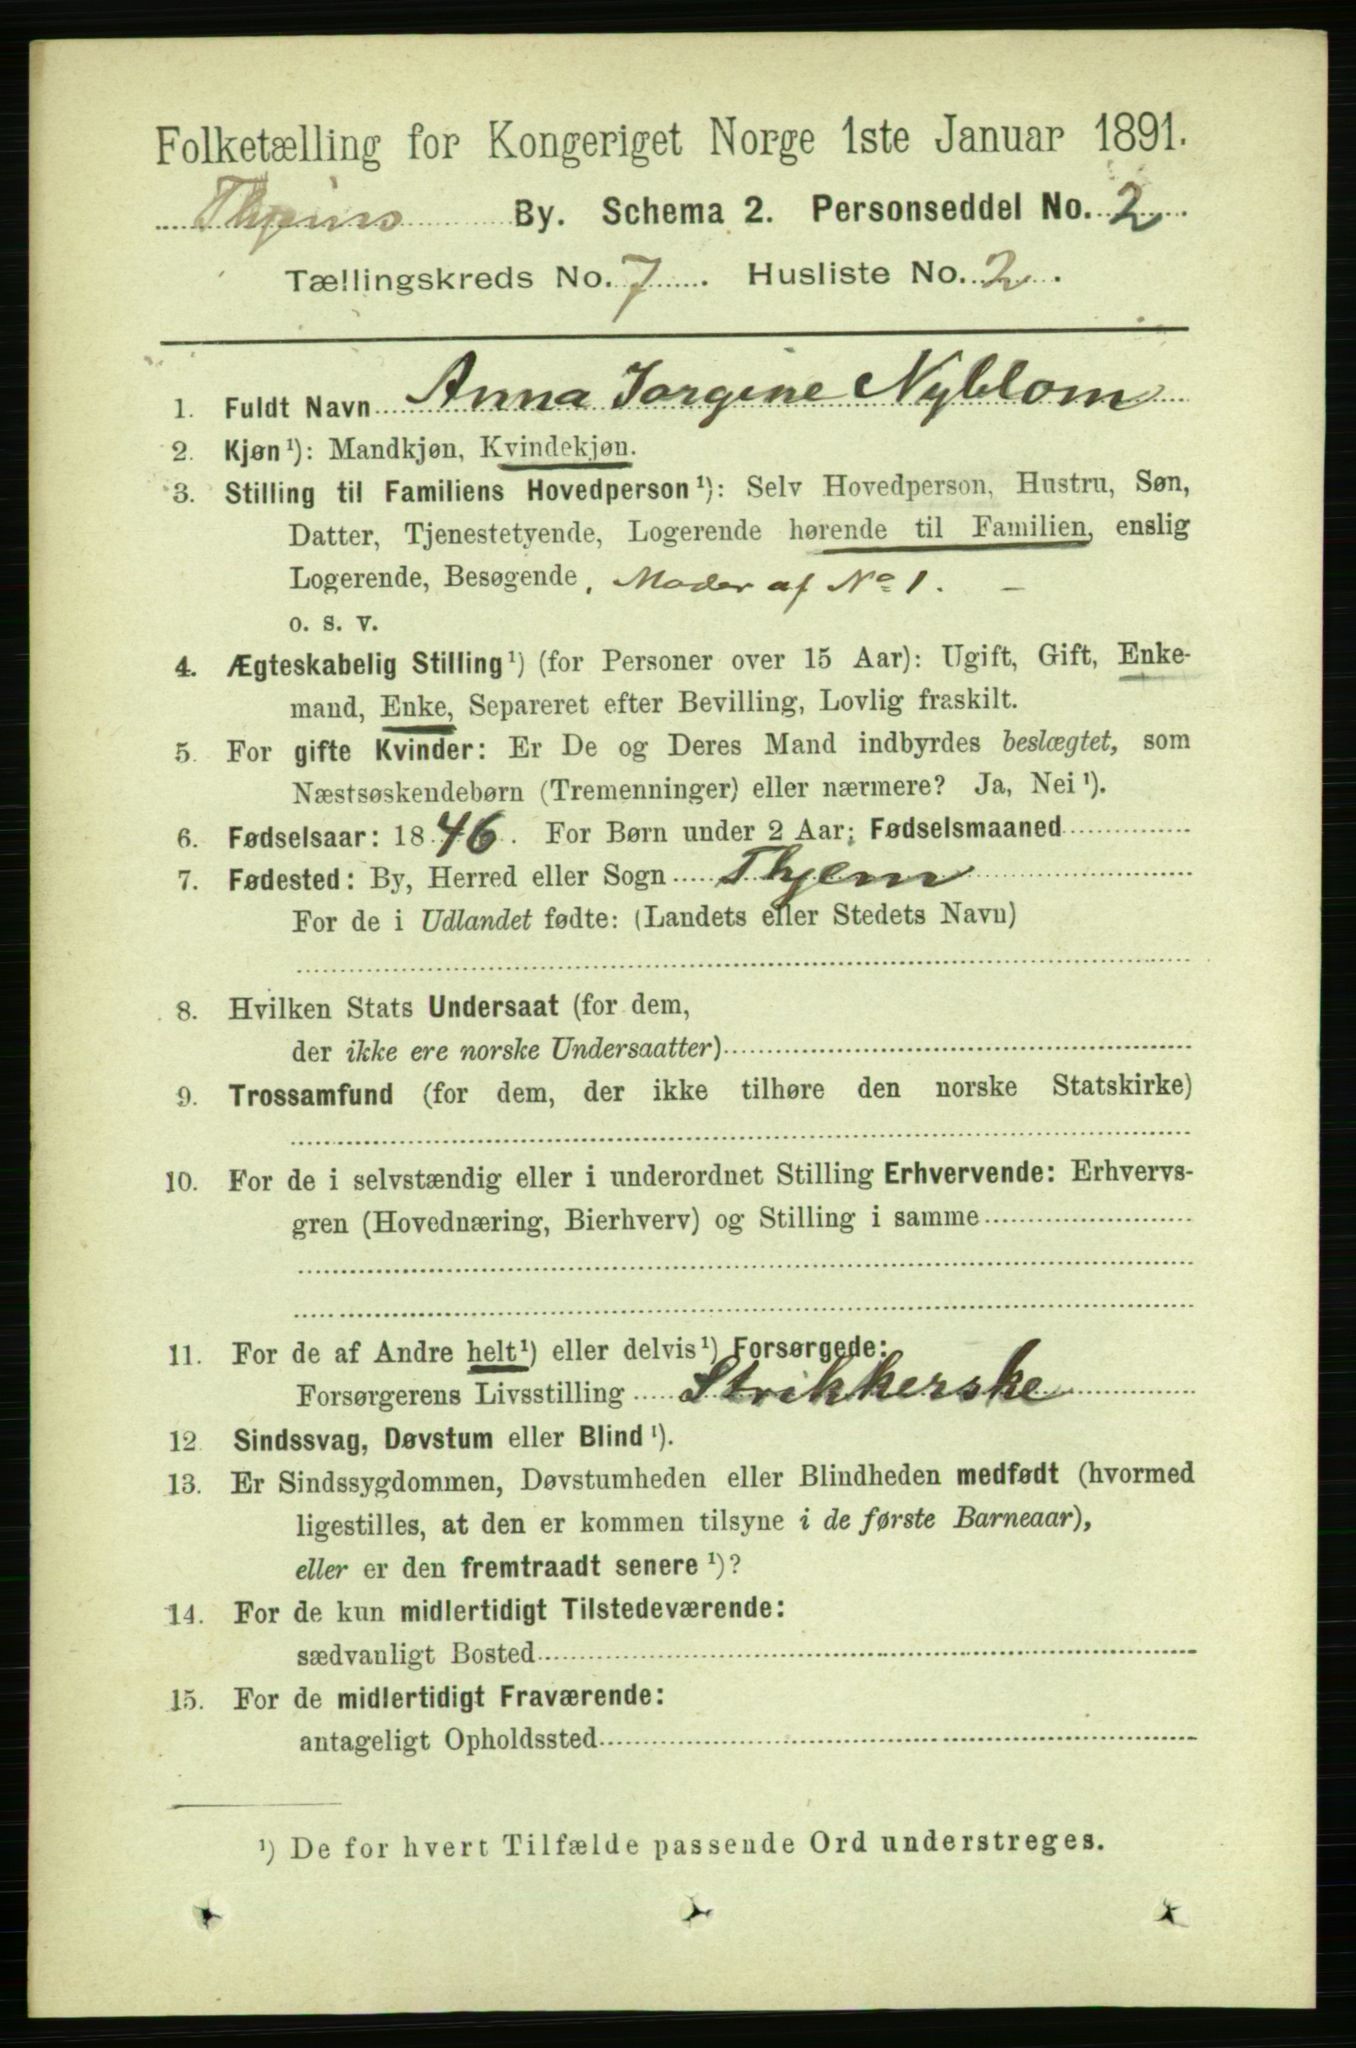 Folketælling for Kongeriget Norge 1ste Januar 1891.
By. Schema 2. Personseddel No. 2.
Tællingskreds No. 7. Husliste No. 2.
1. Fuldt Navn Anna Jorgine Nyblom
2. Kjøn ¹): Mandkjøn, Kvindekjøn.
3. Stilling til Familiens Hovedperson ¹): Selv Hovedperson, Hustru, Søn,
Datter, Tjenestetyende, Logerende hørende til Familien, enslig
Logerende, Besøgende, Moder af No 1. –
o. s. v.
4. Ægteskabelig Stilling ¹) (for Personer over 15 Aar): Ugift, Gift, Enke-
mand, Enke, Separeret efter Bevilling, Lovlig fraskilt.
5. For gifte Kvinder: Er De og Deres Mand indbyrdes beslægtet, som
Næstsøskendebørn (Tremenninger) eller nærmere? Ja, Nei ¹).
6. Fødselsaar: 1846. For Børn under 2 Aar; Fødselsmaaned
7. Fødested: By, Herred eller Sogn Thjem
For de i Udlandet fødte: (Landets eller Stedets Navn)
8. Hvilken Stats Undersaat (for dem,
der ikke ere norske Undersaatter)
9. Trossamfund (for dem, der ikke tilhøre den norske Statskirke)
10. For de i selvstændig eller i underordnet Stilling Erhvervende: Erhvervs-
gren (Hovednæring, Bierhverv) og Stilling i samme
11. For de af Andre helt ¹) eller delvis ¹) Forsørgede:
Forsørgerens Livsstilling Strikkerske
12. Sindssvag, Døvstum eller Blind ¹).
13. Er Sindssygdommen, Døvstumheden eller Blindheden medfødt (hvormed
ligestilles, at den er kommen tilsyne i de første Barneaar),
eller er den fremtraadt senere ¹)?
14. For de kun midlertidigt Tilstedeværende:
sædvanligt Bosted
15. For de midlertidigt Fraværende:
antageligt Opholdssted
¹) De for hvert Tilfælde passende Ord understreges.